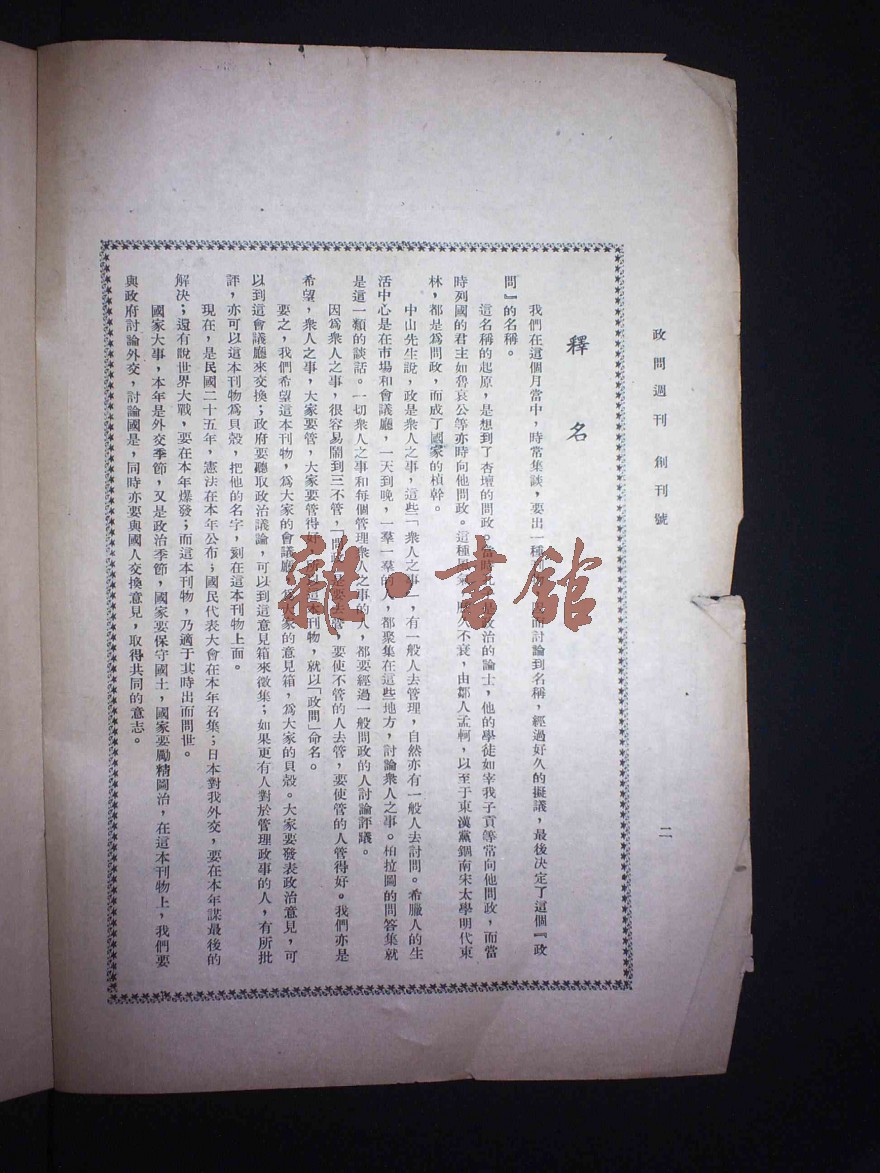 政問週刊 創刊號
二
釋名
我們在這個月當中,時常集談,要出一種刊物,而討論到名稱,經過好久的擬議,最後決定了這個『政
問』的名稱。
這名稱的起原,是想到了杏壇的問政。政治的論士,他的學徒如宰我子貢等常向他問政,而當
時列國的君主如魯哀公等亦時向他問政。這種久不衰,由鄒人孟軻,以至于東漢黨錮南宋太學明代東
林,都是為問政,而成了國家的楨幹。
中山先生說,政是衆人之事,這些「衆人之事」,有一般人去管理,自然亦有一般人去討問。希臘人的生
活中心是在市場和會議廳,一天到晚,一羣一羣的人,都聚集在這些地方,討論衆人之事。柏拉圖的問答集就
是這一類的談話。一切衆人之事和每個管理衆人之事的人,都要經過一般問政的人討論評議。
因爲衆人之事,很容易鬧到三不管,「問政」是要去管,要使不管的人去管,要使管的人管得好。我們亦是
希望,衆人之事,大家要管,大家要管得好,所以這本刊物,就以「政問」命名。
要之,我們希望這本刊物,爲大家的會議廳,爲大家的意見箱,爲大家的貝殼。大家要發表政治意見,可
以到這會議廳來交換;政府要聽取政治議論,可以到這意見箱來徵集;如果更有人對於管理政事的人,有所批
評,亦可以這本刊物爲貝殼,把他的名字,刻在這本刊物上面。
現在,是民國二十五年,憲法在本年公布;國民代表大會在本年召集;日本對我外交,要在本年謀最後的
解決;還有說世界大戰,要在本年爆發;而這本刊物,乃適于其時出而問世。
國家大事,本年是外交季節,又是政治季節,國家要保守國土,國家要勵精圖治,在這本刊物上,我們要
與政府討論外交,討論國是,同時亦要與國人交換意見,取得共同的意志。
雜·書館